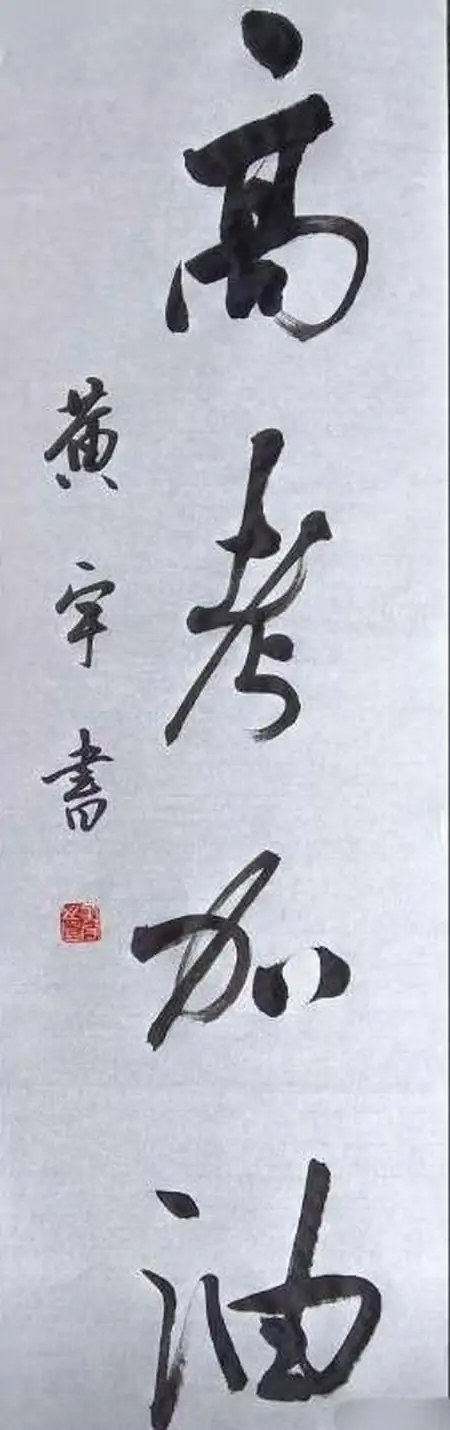 高考加油
黄宇書